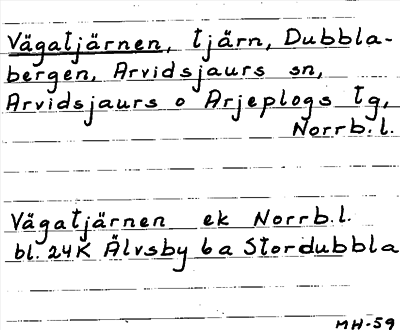 Vägatjärnen, tjärn, Dubbla-
bergen, Arvidsjaurs sn,
Arvidsjaurs o Arjeplogs tg,
Norrb.l.
Vägatjärnen ek Norrb.l.
bl. 24K Älvsby 6a Stordubbla
MH-59